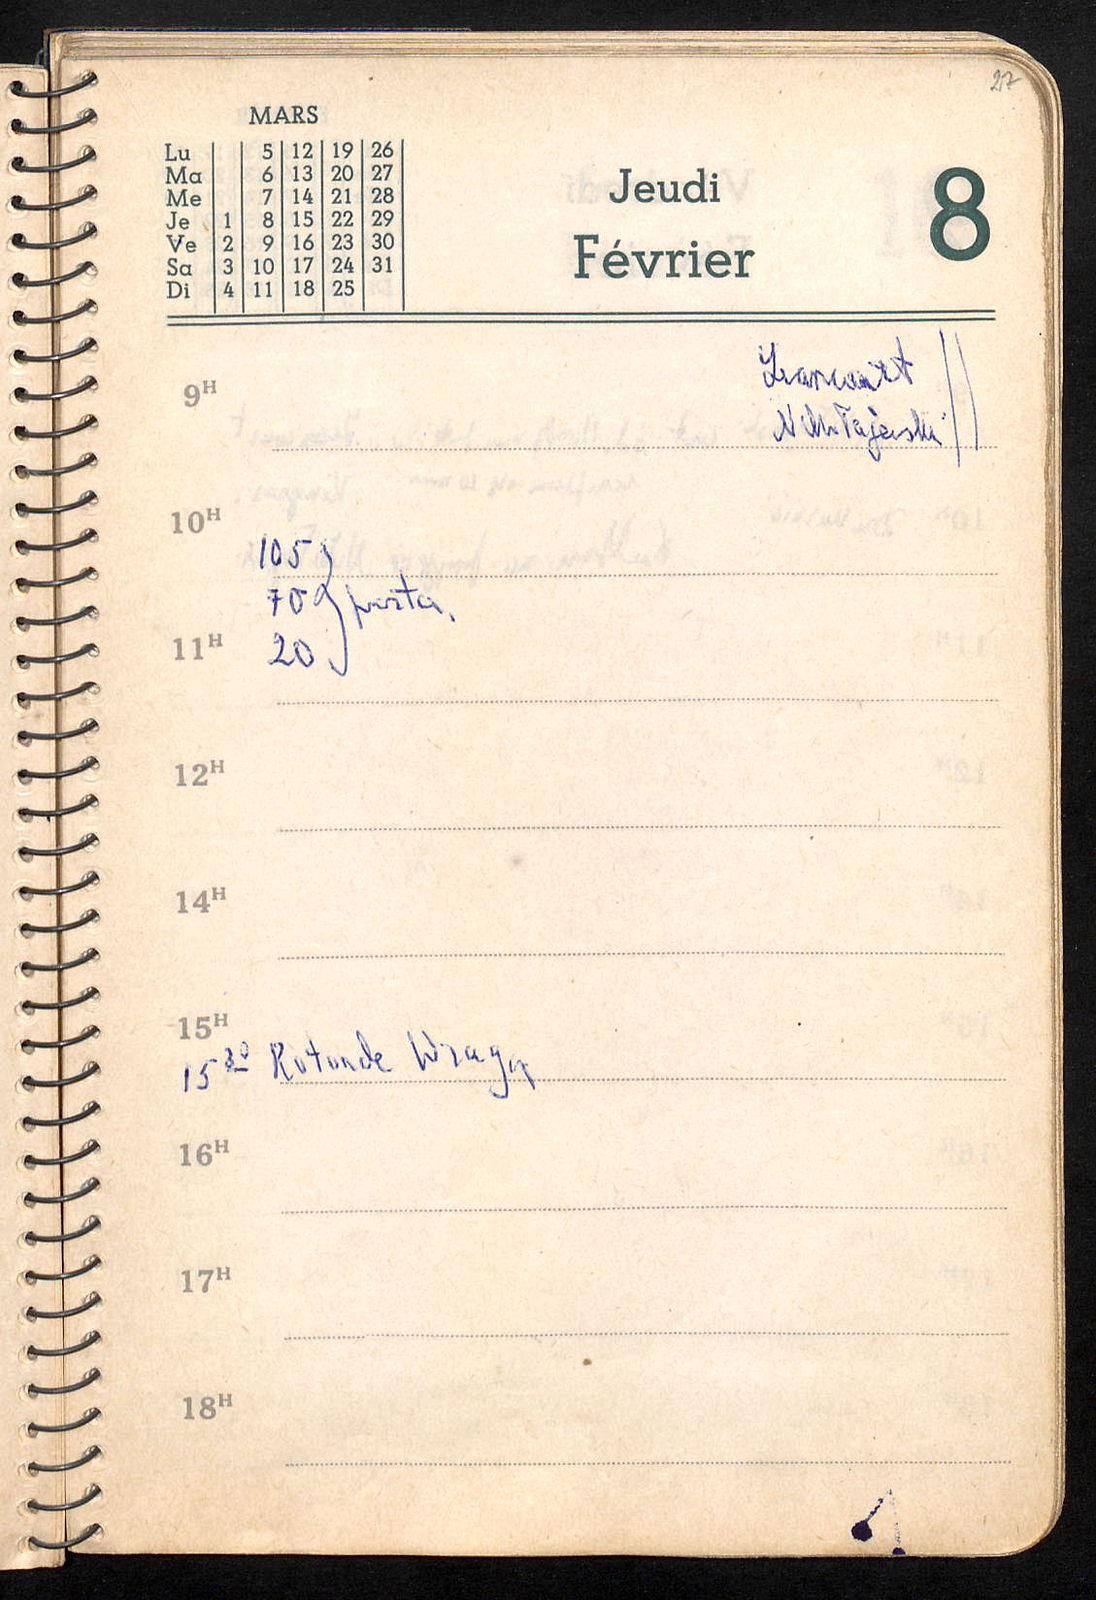 27
MARS
Lu 5 12 19 26
Ma 6 13 20 27
Me 7 14 21 28
Je 1 8 15 22 29
Ve 2 9 16 23 30
Sa 3 10 17 24 31
Di 4 11 18 25
Jeudi
Février
8
9H
10H
105
70 poczta.
20
11H
12H
14H
15H
15 30 Rotonde Wraga
16H
17H
18H